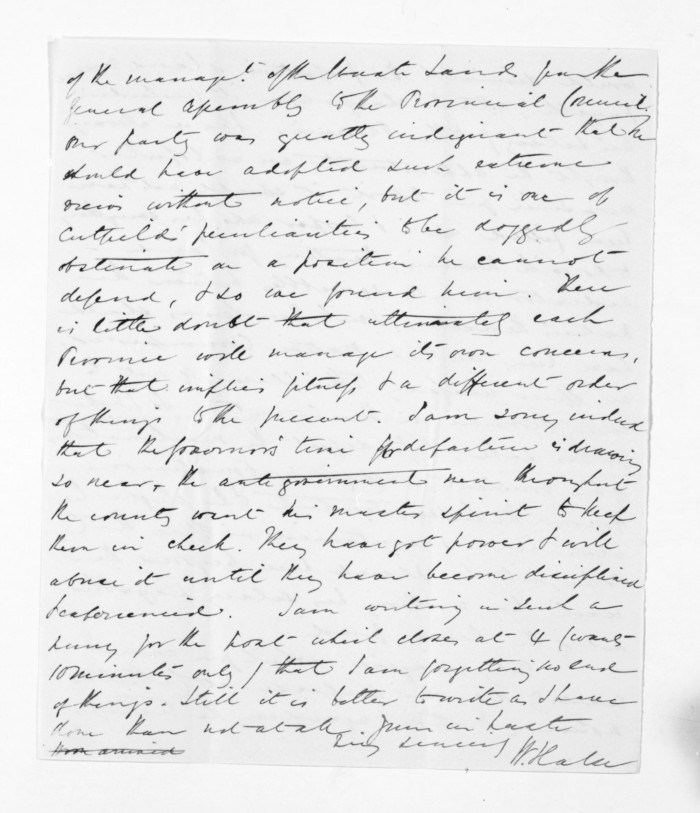 of the managt. of the Waste Lands from the
General Assembly to the Provincial Council.
Our party was greatly indignant that he
should have adopted such extreme
views without notice, but it is one of
Cutfield's peculiarities to be doggedly
obstinate on a position he cannot
defend, & so we found him. There
is little doubt that ultimately each
Province will manage its own concerns,
but that implies fitness & a different order
of things to the present. I am sorry indeed
that the Governor's time for departure is drawing
so near, the antigovernment men throughout
the country want his master spirit to keep
them in check. They have got power & will
abuse it until they have become disciplined
& experienced. I am writing in such a
hurry for the post which closes at 4 (wants
10 minutes only) that I am forgetting no end
of things. Still it is better to write as I have
done than not at all. Yours in haste
Very sincerely W. Halse